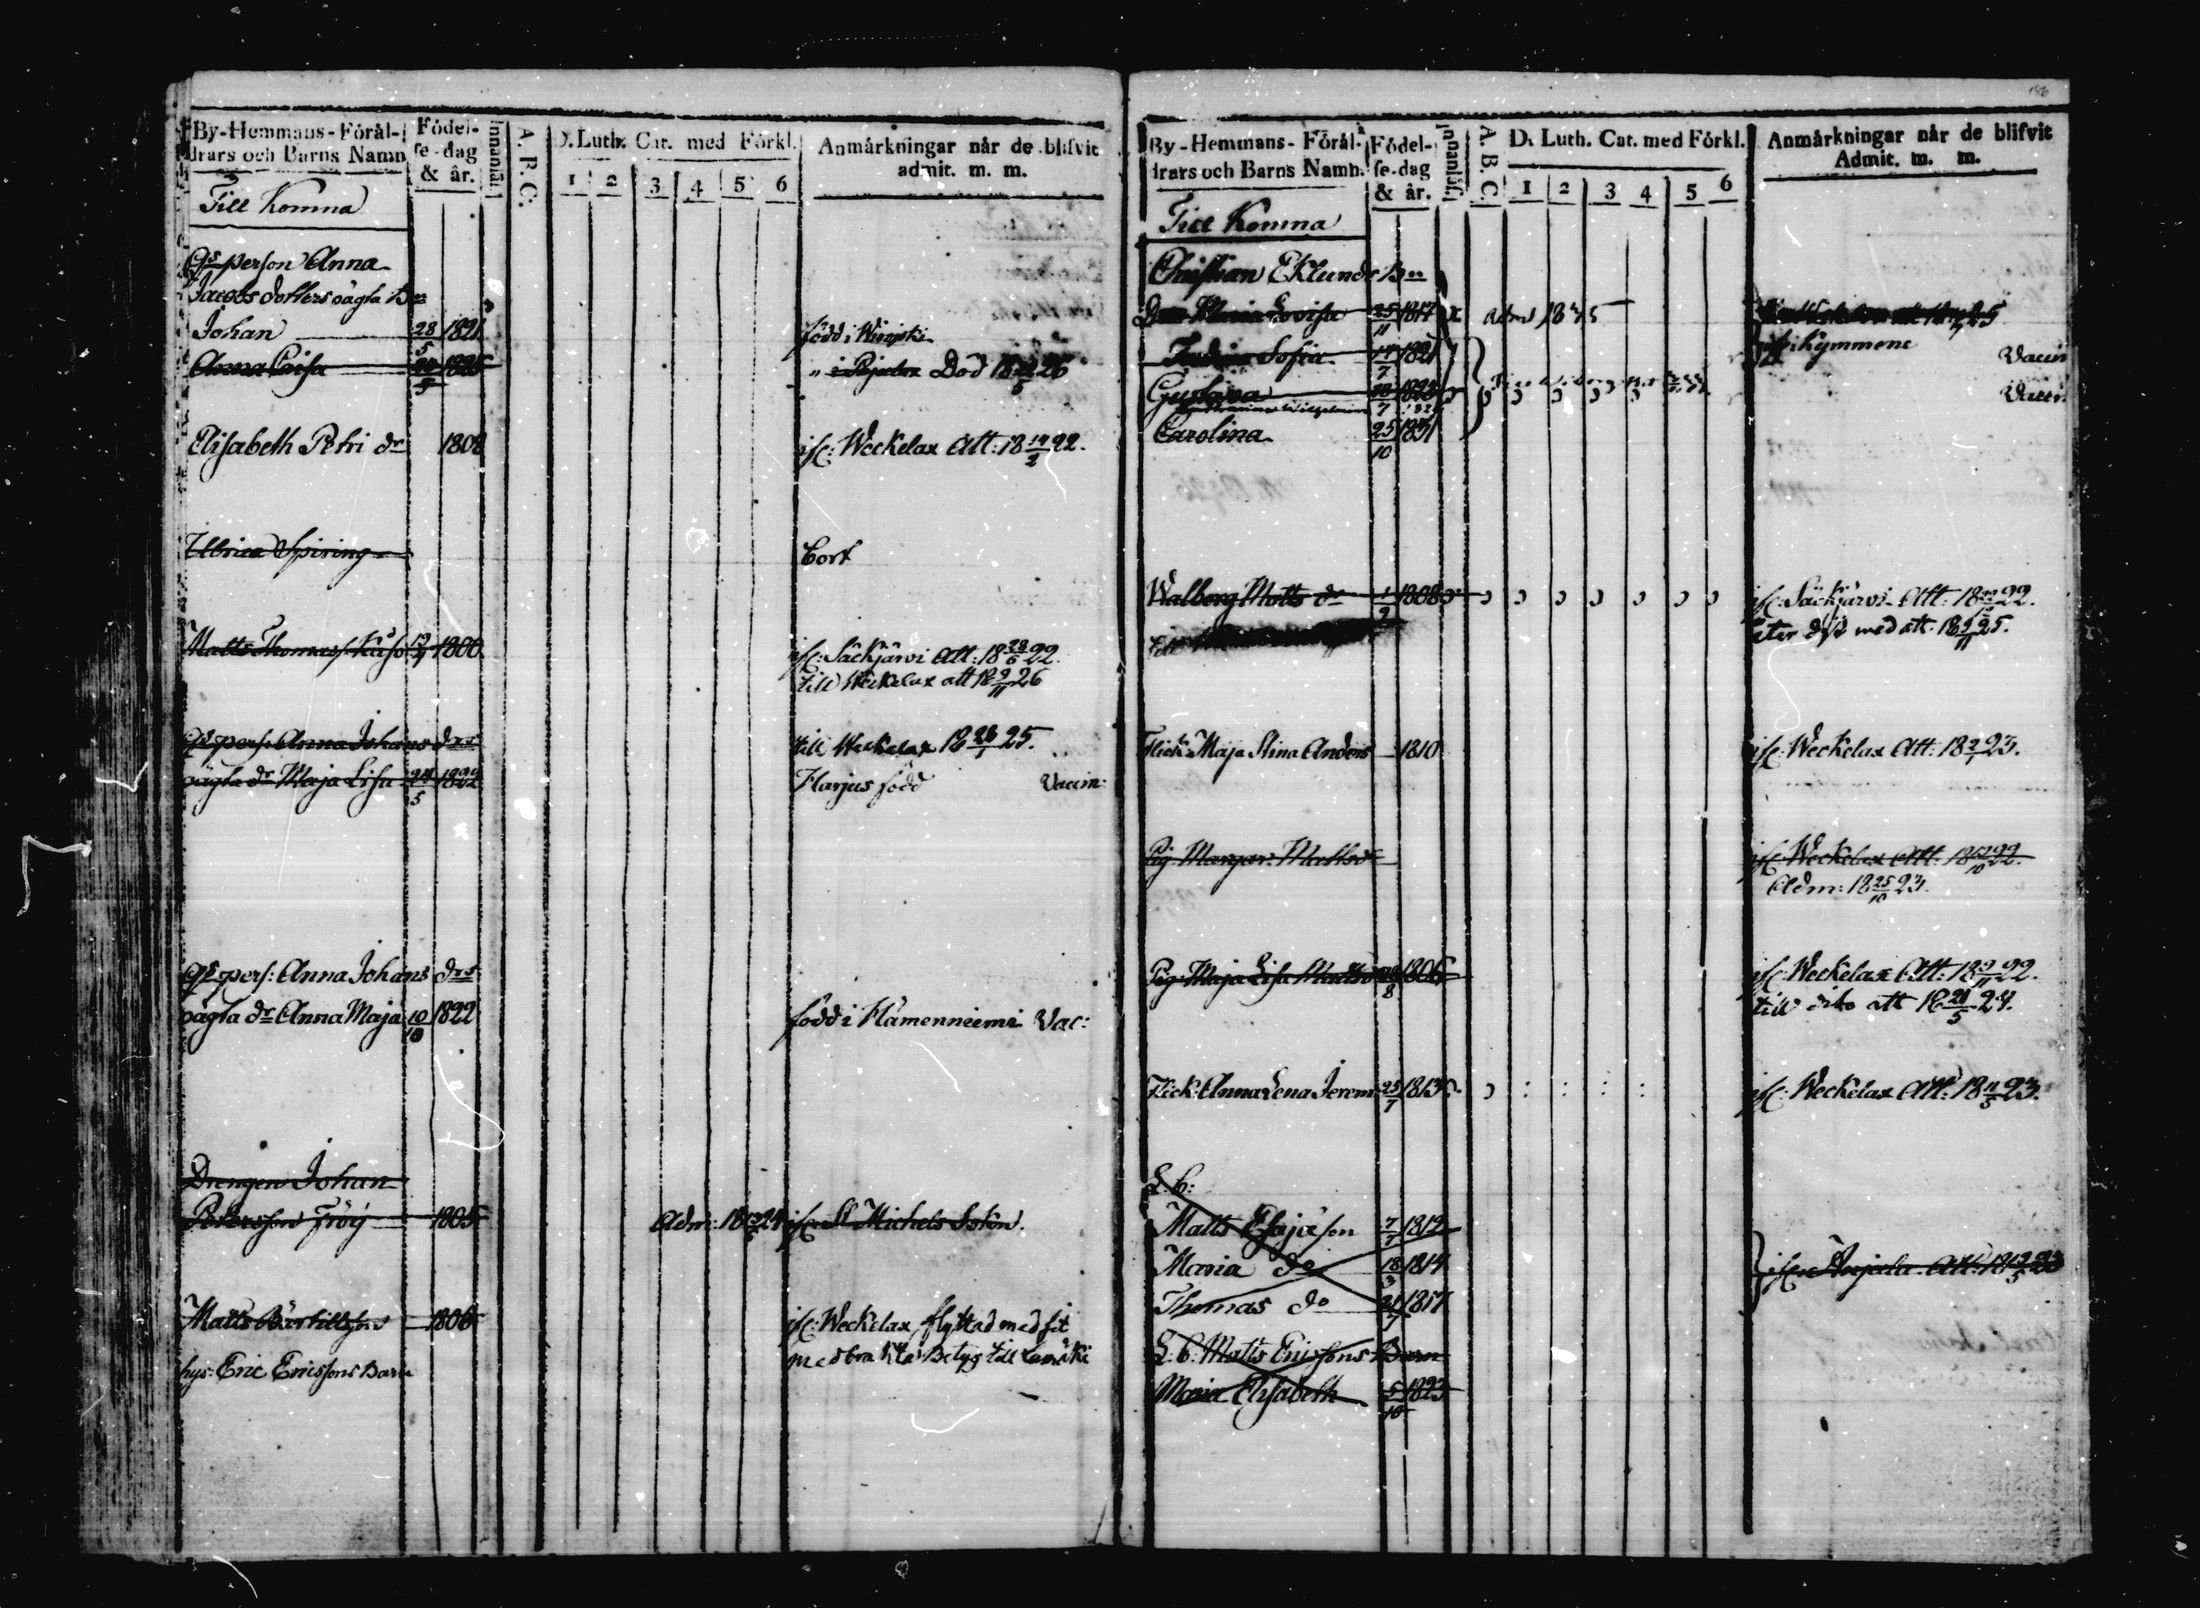 By-Hemmans-Föräl-
drars och Barns Namn
Födel-
se-dag
& år.
Innanläs.
A. B. C.
D. Luth. Cat. med Förkl.
1 2 3 4 5 6
Anmärkningar når de blifvit
admit. m. m.
Till Komna
Qs person Anna
Jacobs dotters oägta Bn
Johan 28/5 1821 född i
Anna Caisa 1825 Död 18 26
Elisabeth Petri dr 1808 ifr: Weckelax Att: 18 14/2 22.
Ulrica Spiring bort
Matts Thomass. 1800 ifr: Säckjärvi Att: 18 28/6 22
till Weckelax att 18 9/11 26
Qs pers: Anna Johans drs till Weckelax 18 23/1 25.
oägta dr Maja Lisa 24/5 1822 Harjus född Vaccin:
Qs pers: Anna Johans drs
oägta dr Anna Maja 10/10 1822 född i Hamenniemi Vac:
Drengen Johan
Petersson Fröij 1805 Adm: 18 24 ifr: St Michels Sokn.
Matts Bärtillsson 1806 ifr: Weckelax flyttad med sit
medbrakta Betyg till
hys: Eric Ericssons Barn
186
By-Hemmans-Föräl-
drars och Barns Namn.
Födel-
se-dag
& år.
Innanläs.
A. B. C.
D. Luth. Cat. med Förkl.
1 2 3 4 5 6
Anmärkningar når de blifvit
Admit. m. m.
Till Komna
Christian Eklunds Bn
Lovisa 25/11 1817 Adm 1835
Sofia 14/7 1821 kymmene Vaccin
Gustava 1828 Vaccin
Carolina 25/10 1831
Walborg Matts dr 1/9 1808 ifr: Säckjärvi Att: 18 22.
åter dit med att: 18 9/11 25.
Flick: Maja Stina Anders 1810 ifr: Weckelax Att: 18 23.
Pig Margar: Mattsdr ifr: Weckelax Att: 18 22.
Adm: 18 25/10 23.
Pig: Maja Lisa Matts 1806 ifr: Weckelax Att: 18 9/11 22.
till dito att 18 21/5 24.
Flick: Anna Lena Jerem: 25/7 1813 ifr: Weckelax Att: 18 11/5 23.
L.b:
Matts Esajæson 7/7 1812
Maria do 18/3 1814 ifr: Anjala Att: 18 23
Thomas do 1817
L.b: Matts Ericssons Barn
Maria Elisabeth 5/10 1823